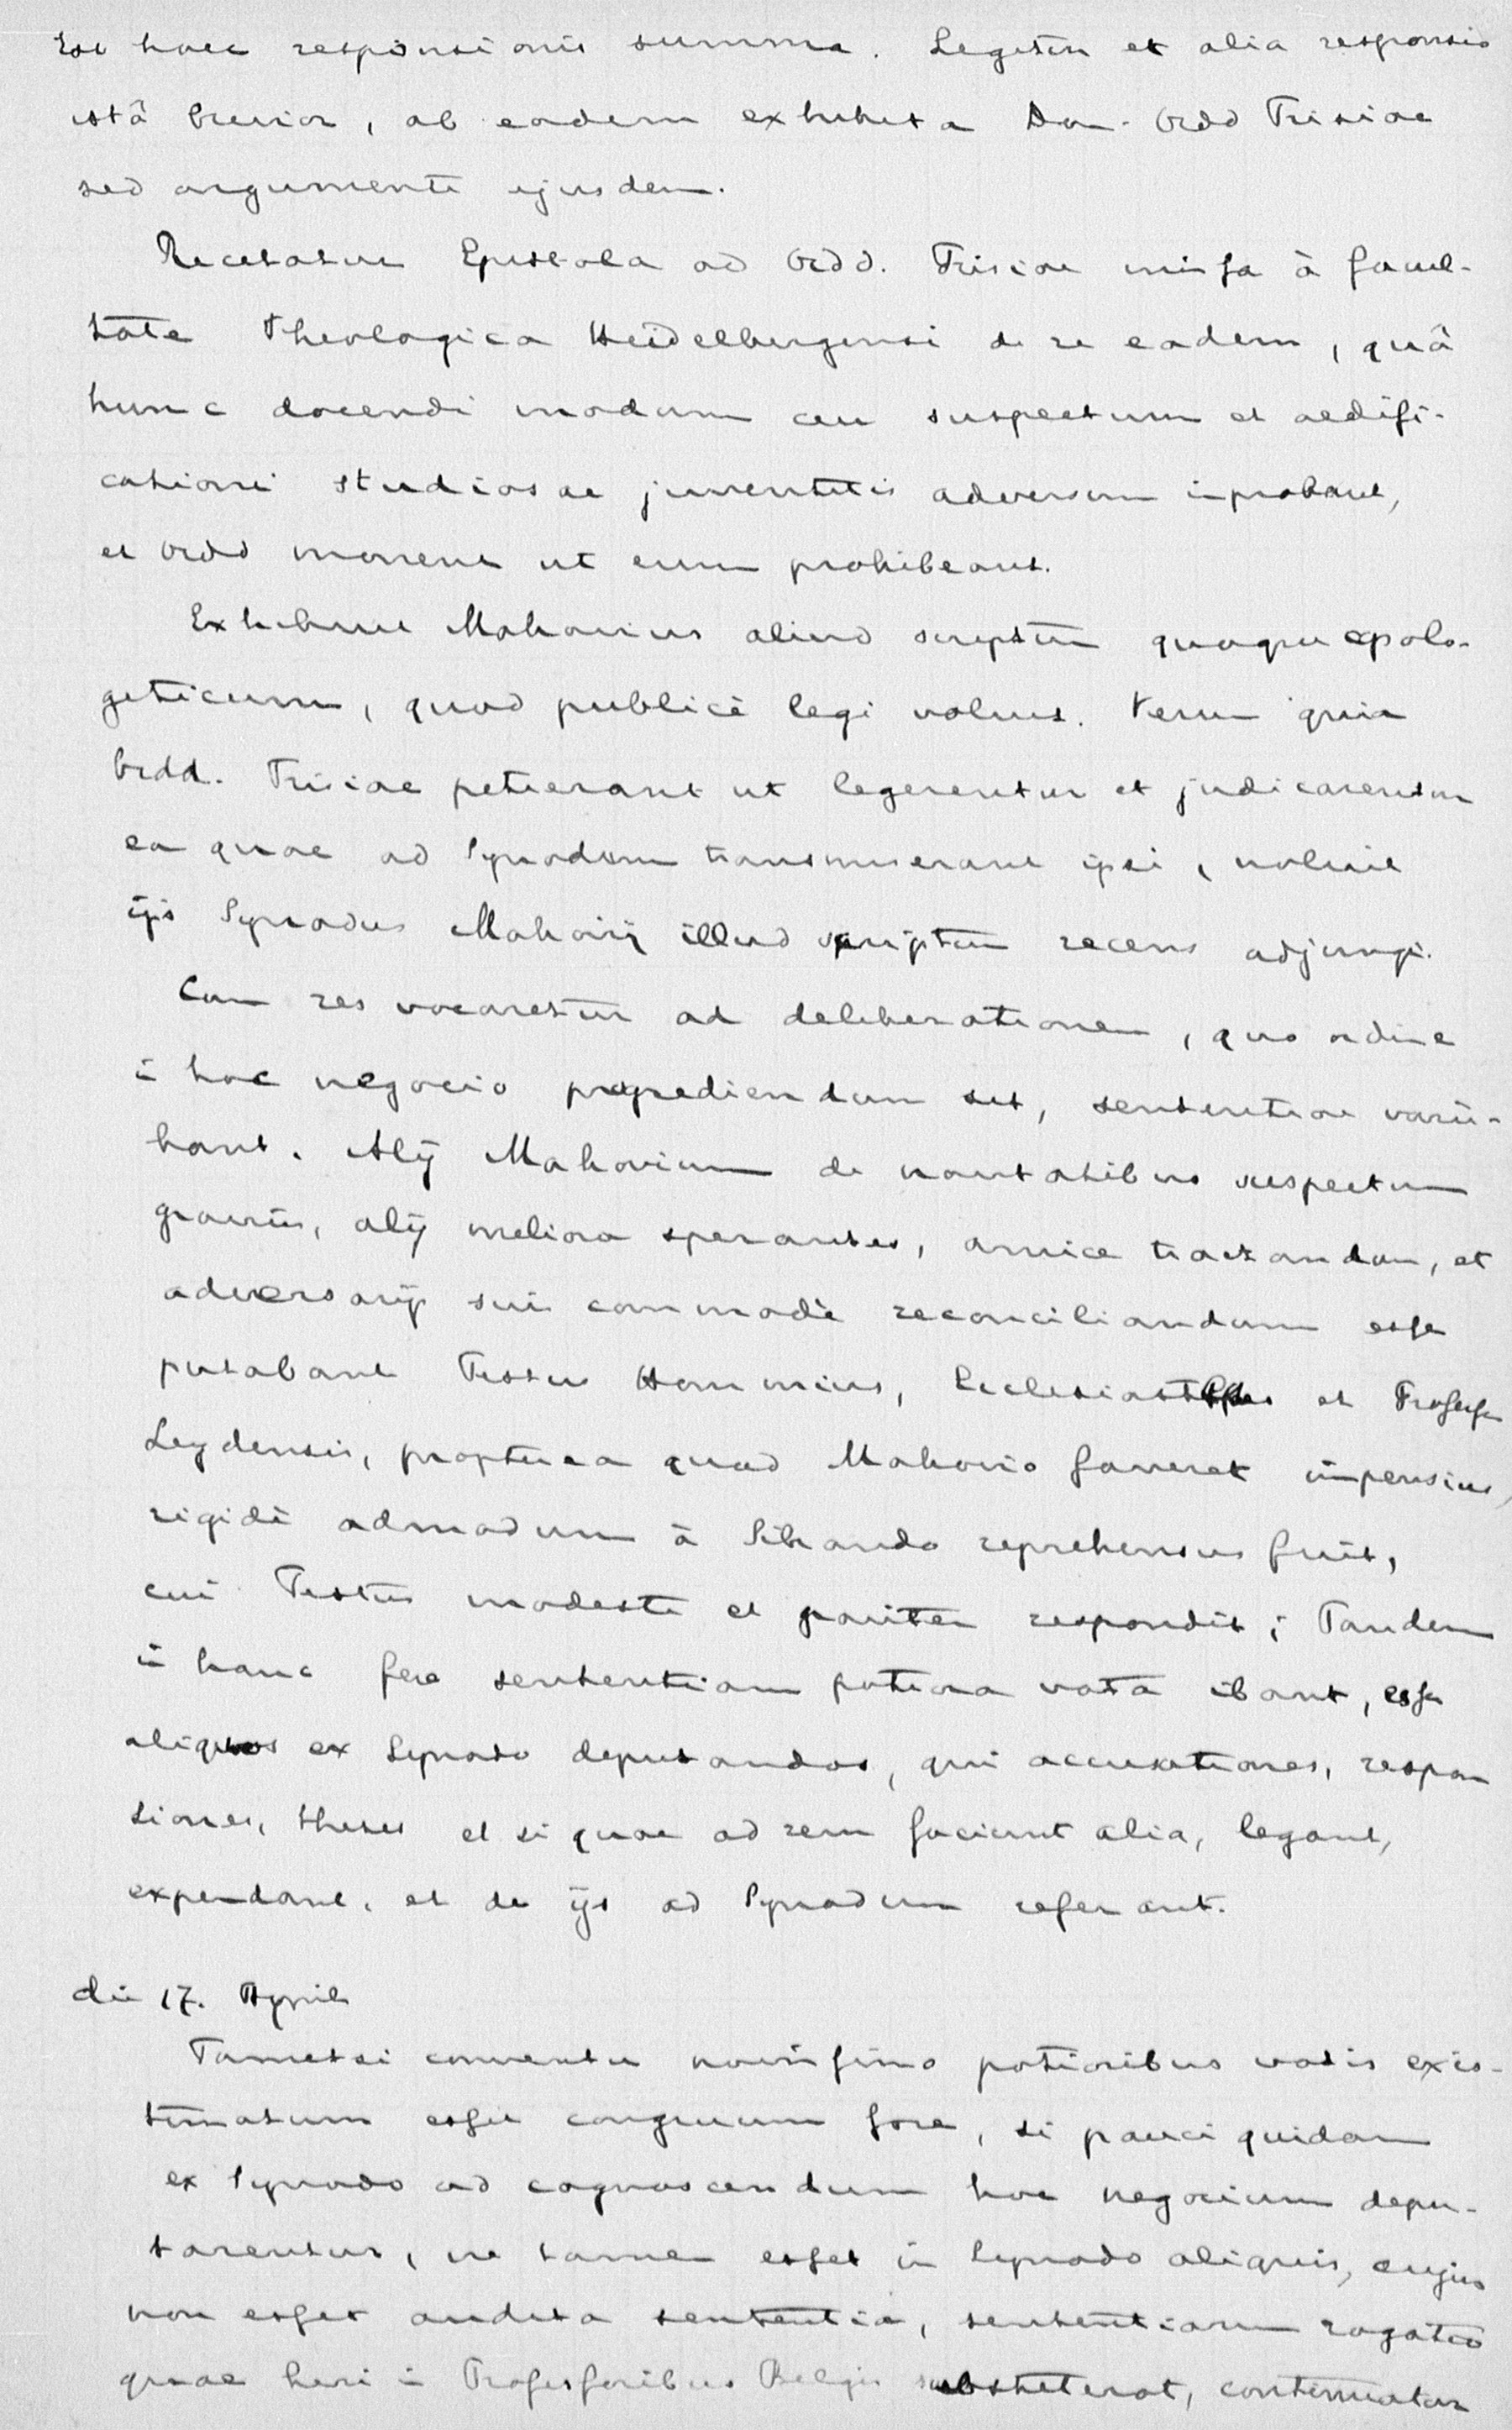 Est haec responsionis summa. Legitur et alia responsio
istâ brevior, ab eodem exhibita Dom. Ordd Frisiae
sed argumenti ejusdem.
Recitatur Epistola ad Ordd. Frisiae missa à facul-
tate Theologica Heidelbergensi de re eadem, quâ
hunc docendi modum ceu suspectum et aedifi-
cationi studiosae juventutis adversum improbant,
et Ordd monent ut eum prohibeant.
Exhibuit Makovius aliud scriptum quoque apolo-
geticum, quod publicè legi voluit. Verum quia
Ordd. Frisiae petierant ut legerentur et judicarentur
ea quae ad Synodum transmiserant ipsi, noluit
ijs Synodus Makovij illud scriptum recens adjungi.
Cum res vocaretur ad deliberationem, quo ordine
in hoc negocio progrediendum sit, sententiae varia-
bant. Alij Makovium de novitatibus suspectum
gravius, alij meliora sperantes, amice tractandum, et
adversarijs suis commodè reconciliandum esse
putabant Festus Hommius, Ecclesiastes et Professor
Leydensis, propterea quod Makovio faveret impensius,
rigidè admodum à Sibrando reprehensus fuit,
cui Festus modeste et pariter respondit; Tandem
in hanc fere sententiam potiora vota ibant, esse
aliquos ex Synodo deputandos, qui accusationes, respon
siones, theses et si quae ad rem faciunt alia, legant,
expendant, et de ijs ad Synodum referant.
die 17. April
Tametsi conventu novissimo potioribus votis exis-
timatum esset congruum fore, si pauci quidam
ex Synodo ad cognoscendum hoc negocium depu-
tarentur, ne tamen esset in Synodo aliquis, cujus
non esset audita sententia, sententiarum rogatio
quae heri in Professoribus Belgis substiterat, continuatur